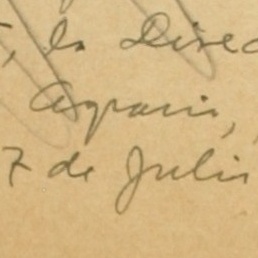 , la Direc
Agraria,
7 de Julio